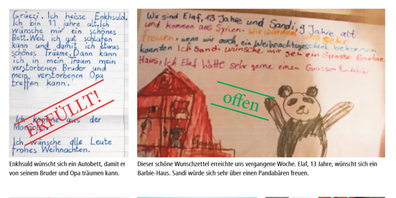 Grüezi. Ich heisse Enkhsuld.
Ich bin 11 Jahre alt. Ich
wünsche mir ein schönes
Bett. Weil ich gut schlafen
kann und damit ich etwas
schönes Träume. Dann kann
ich in mein Traum mein
verstorbenen Bruder und
mein verstorbenen Opa
treffen kann.
ERFÜLLT!
Ich komme aus der
Mongolei
Ich wünsche alle Leute
frohes Weihnachten.
Wir sind Elaf, 13 Jahre und Sandi, 9 Jahre alt
und kommen aus Syrien. Wir würden
freuen, wenn wir auch ein Weihnachtsgeschenk bekommen
könnten Ich Sandi wünsche mir gern ein Grosse Barbie
Haus. Ich Elaf Hätte sehr gerne einen Grossen Pandabär
offen
Enkhsuld wünscht sich ein Autobett, damit er
von seinem Bruder und Opa träumen kann.
Dieser schöne Wunschzettel erreichte uns vergangene Woche. Elaf, 13 Jahre, wünscht sich ein
Barbie-Haus. Sandi würde sich sehr über einen Pandabären freuen.